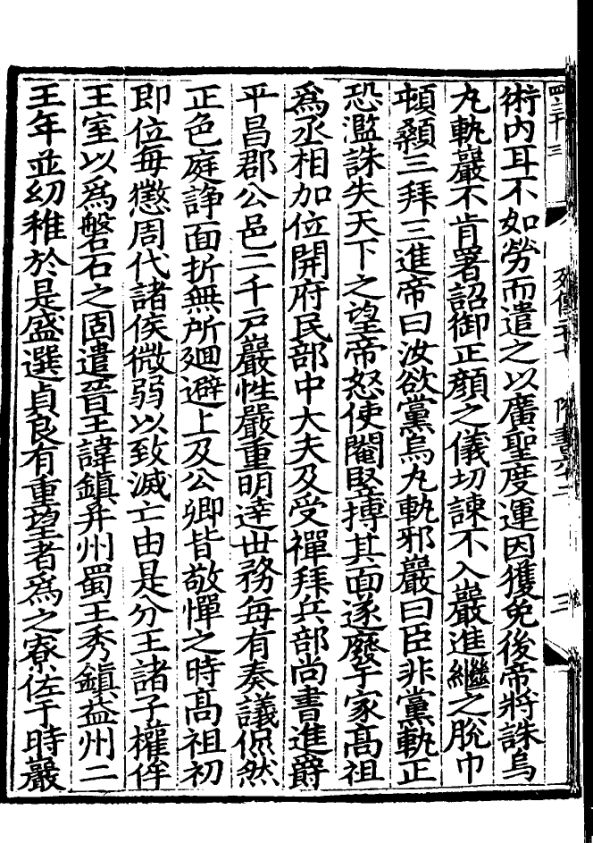 術內耳不如勞而遣之以廣聖度運因獲免後帝將誅烏
丸軌嚴不肯署詔御正顔之儀切諫不入巖進繼之脫巾
頓顙三拜三進帝曰汝欲黨烏丸軌邪巖曰臣非黨軌正
恐濫誅失天下之望帝怒使閹竪搏其面遂廢于家髙祖
爲丞相加位開府民部中大夫及受禪拜兵部尚書進爵
平昌郡公邑二千戸巖性嚴重明達世務每有奏議侃然
正色庭諍面折無所廻避上及公卿皆敬憚之時髙祖初
即位每懲周代諸侯微弱以致滅亡由是分王諸子權侔
王室以爲磐石之固遣晉王諱鎮并州蜀王秀鎮益州二
王年並幼稚於是盛選貞良有重望者爲之寮佐于時巖